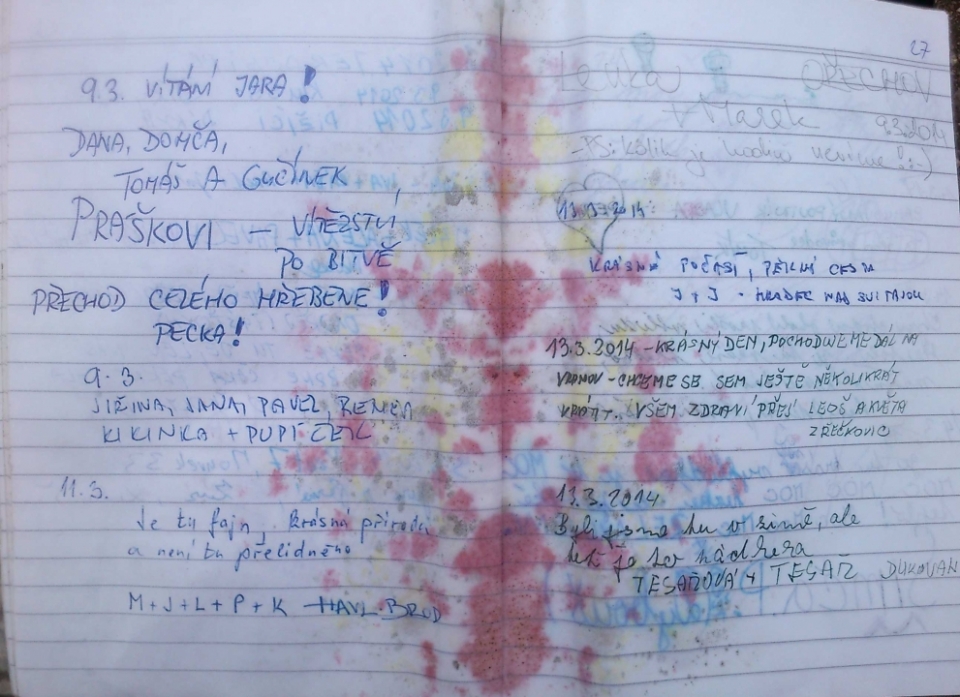 9.3. VÍTÁNÍ JARA!
DANA, DOMČA,
TOMÁŠ A GUČÍNEK
PRAŠKOVI – VÍTĚZSTVÍ
PO BITVĚ
PŘECHOD CELÉHO HŘEBENE!
PECKA!
9.3.
JIŘINA, JANA, PAVEL,
KIKINKA +
11.3.
Je tu fajn, krásná příroda
a není tu přelidněno
M+J+L+P+K HAVL. BROD
27
Lenka OŘECHOV
+ Marek 9.3.2014
PS: je
13.03.2014
KRÁSNÉ POČASÍ, PĚKNÁ CESTA
J + J - HRADEC NAD SVITAVOU
13.3.2014 - KRÁSNÝ DEN, POCHODUJEME DÁL NA
VRANOV - CHCEME SE SEM JEŠTĚ NĚKOLIKRÁT
VRÁTIT. VŠEM ZDRAVÍ PŘEJÍ LEOŠ A KVĚTA
Z ŘEČKOVIC
13.3.2014
Byli jsme tu v zimě, ale
teď je to nádhera
TESAŘOVÁ + TESAŘ DUKOVAN